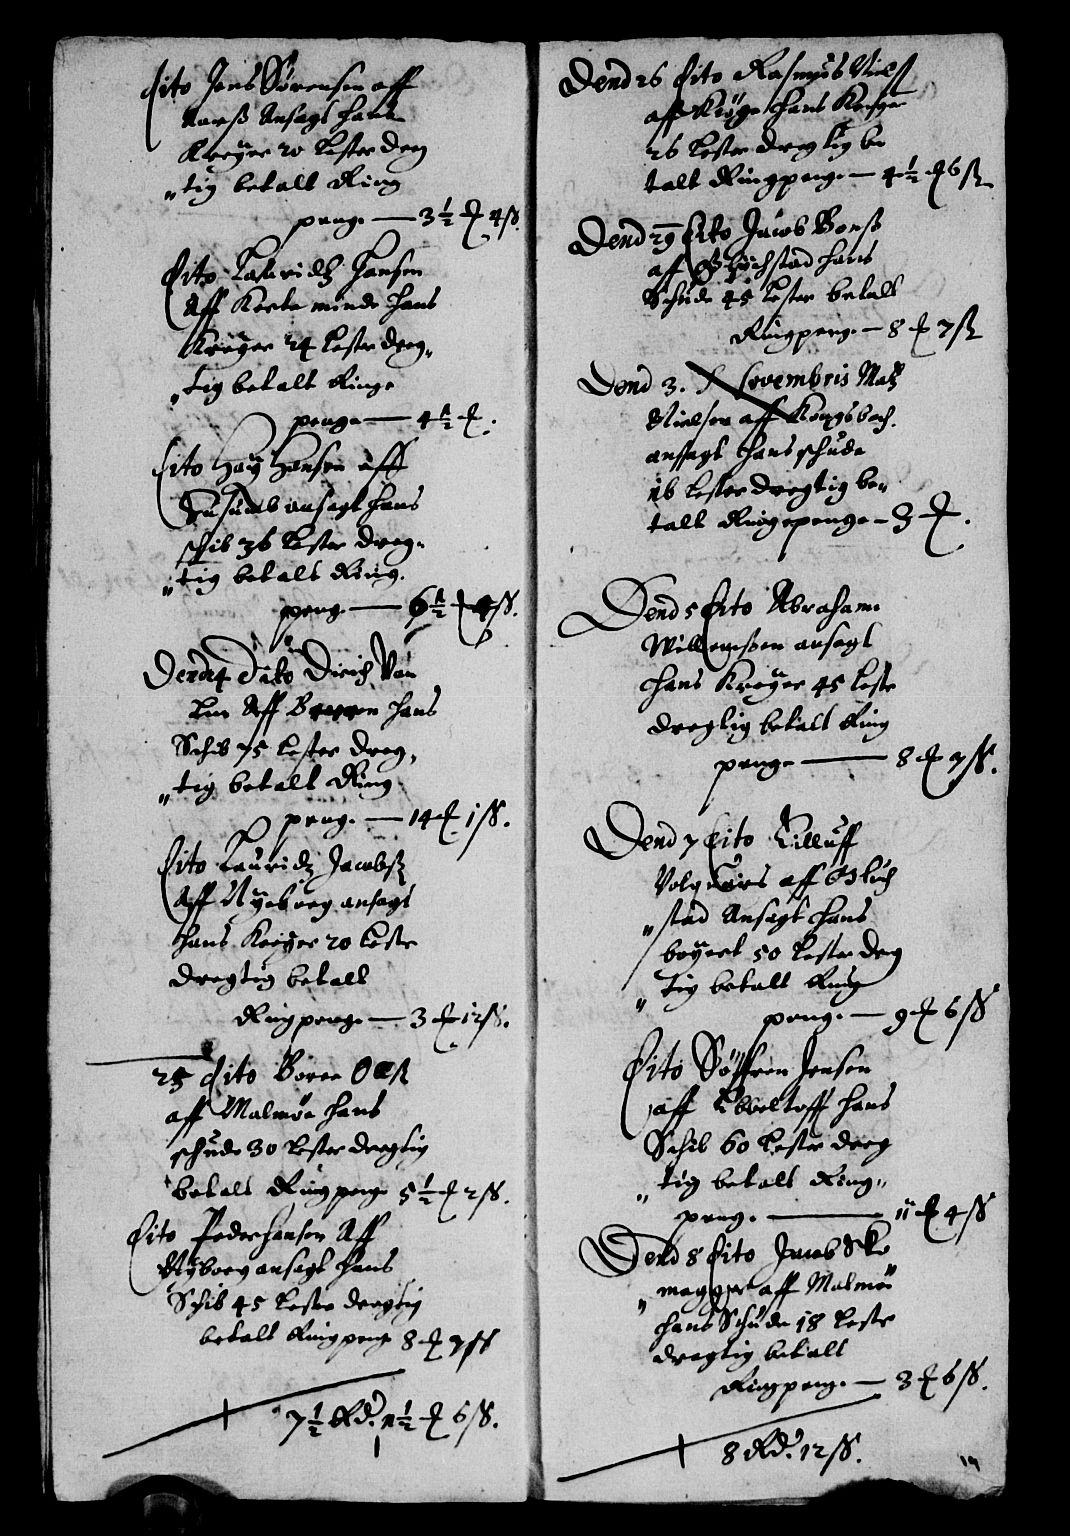 Dito Jens Sørensen aff
Aarß Ansagt hans
Kreyer 20 Lester dreg
tig betalt Ring
penge — 3½ 4ß.
Dito Lauridtz Hansen
Aff Kerteminde hans
Kreyer 24 Lester dreg,
tig betalt Ringe
penge — 4½
Dito Hans Hansen aff
ansagt hans
schib 36 Lester dreg,
tig betalt Ring,
peng — 6½ ß.
Dend 14 Dito Dirich Van
Aff hans
Schib 75 Lester dreg,
tig betalt Ring
peng. — 14 1ß.
Dito Lauridtz Jacobß
Aff Nyeborg ansagt
hans Kreyer 20 Lester
dregtig betalt
Ringpenge — 3 12ß.
25 Dito Olß
aff Malmøe hans
schude 30 Lester dregtig
betalt Ringpenge 5½ 2ß.
Dito Peder hansen Aff
Nyborg ansagt hans
Schib 45 Lester dregtig
betalt Ringpeng 8 7ß
7½ Rd. 1½ 6ß.
Dend 26 Dito Rasmus Nielß
aff Kiøge hans Kreyer
26 Lester dregtig be
talt Ringpenge — 4½ 6ß
Dend 29 Dito Jacob
aff hans
Schude 45 Lester betalt
Ringpenge — 8 7ß
Dend 3. Novembris Matz
Nielsen aff Kongsbach.
ansagt hans schude
16 Lester dregtig be,
talt Ringepenge — 3
Dend 5 Dito Abraham
Willemsen ansagt
hans Kreyer 45 Lester
dregtig betalt Ring
penge — 8 7ß.
Dend 7 Dito
aff Glück
stad Ansagt hans
boyert 50 Lester dreg
tig betalt Ring
peng. — 9 6ß
Dito Søffren Jensen
aff Ebeltoff hans
Schib 60 Lester dreg
tig betalt Ring,
peng. — 11 4ß
Dend 8 Dito Jacob Sko
magger aff Malmøe
hans Schude 18 Lester
dregtig betalt
Ringpeng. — 3 6ß.
8 Rd. 12ß.